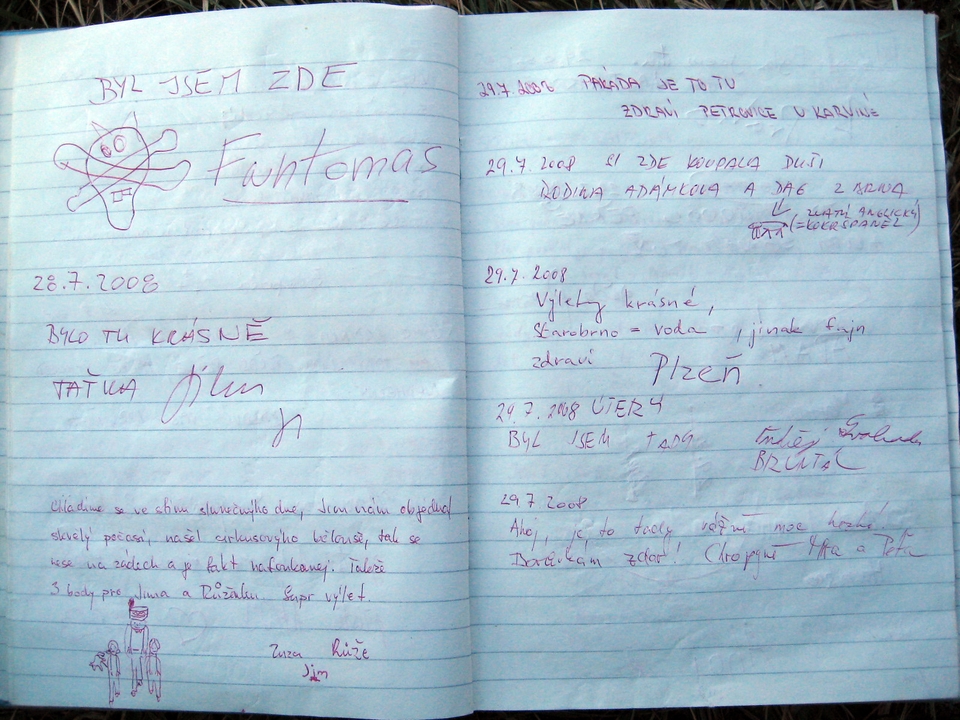 BYL JSEM ZDE
Fantomas
28.7.2008
BYLO TU KRÁSNĚ
TAŤKA
Chládíme se ve stínu slunečného dne, Jim nám objednal
skvělý počasí, našel cirkusovýho bělouše, tak se
nese na zádech a je fakt nafoukanej. Takže
3 body pro Jima a Růženku Supr výlet.
Zuza Růže
Jim
29.7.2008 PARÁDA JE TO TU
ZDRAVÍ PETROVICE U KARVINÉ
29.7.2008 SI ZDE KOUPALA DUŠI
RODINA ADÁMKOVA A DAG Z BRNA
(=ZLATÝ ANGLICKÝ
KOKRŠPANĚL)
29.7.2008
Výlety krásné,
Starobrno = voda, jinak fajn
zdraví Plzeň
29.7.2008 ÚTERÝ
BYL JSEM TADY Svoboda
BRUNTÁL
29.7 2008
Ahoj, je to tady vážně moc hezké!
zdar! Chropyně a Péťa